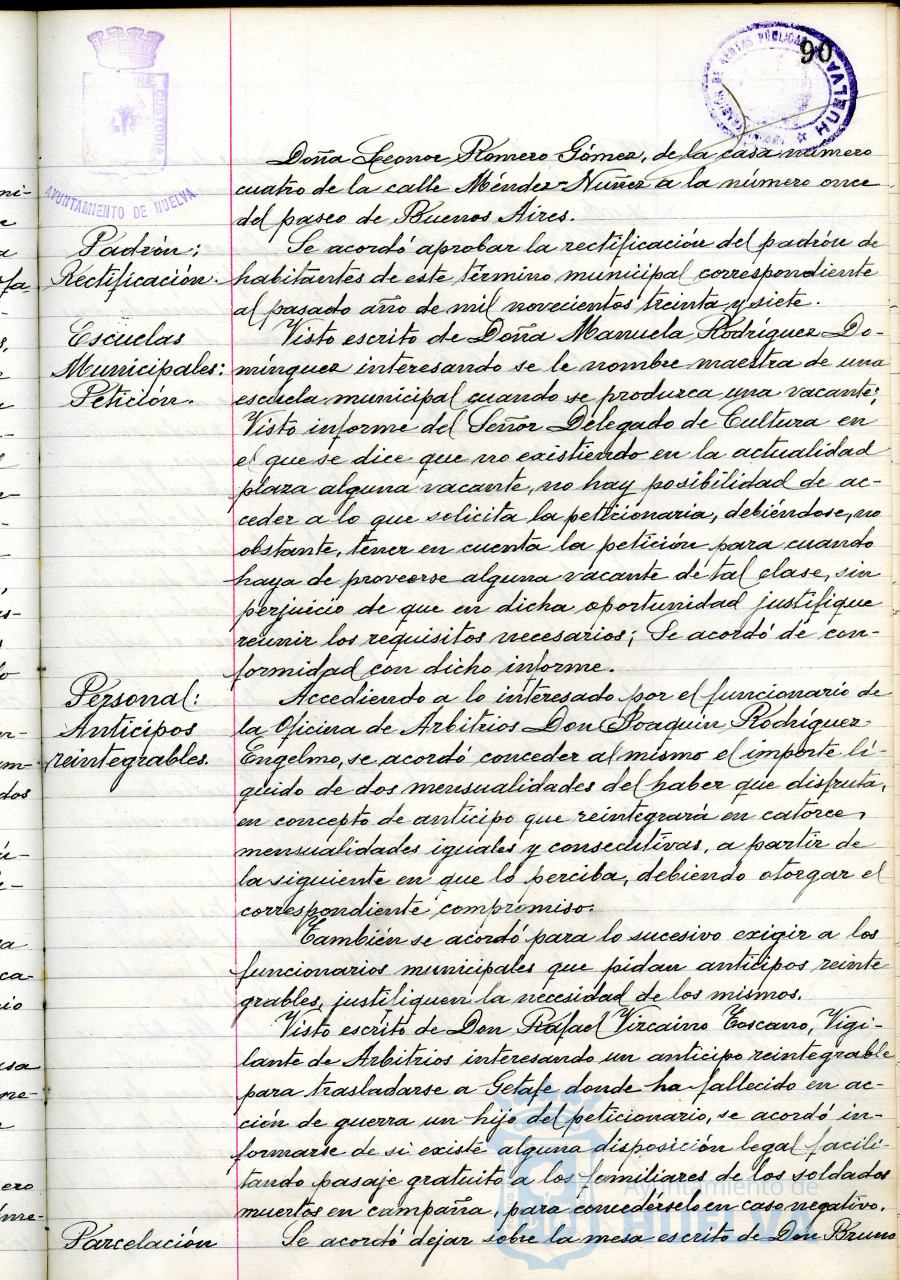 90
HUELVA
CUSTODIA
AYUNTAMIENTO DE HUELVA
Doña Leonor Romero Gómez, de la casa número
cuatro de la calle Méndez-Nuñez a la número once
del paseo de Buenos Aires.
Padrón;
Rectificación.
Se acordó aprobar la rectificación del padrón de
habitantes de este término municipal correspondiente
al pasado año de mil novecientos treinta y siete.
Escuelas
Municipales:
Petición.
Visto escrito de Doña Manuela Rodríguez Do-
mínguez interesando se le nombre maestra de una
escuela municipal cuando se produzca una vacante;
Visto informe del Señor Delegado de Cultura en
el que se dice que no existiendo en la actualidad
plaza alguna vacante, no hay posibilidad de ac-
ceder a lo que solicita la peticionaria, debiéndose, no
obstante, tener en cuenta la petición para cuando
haya de proveerse alguna vacante de tal clase, sin
perjuicio de que en dicha oportunidad justifique
reunir los requisitos necesarios; Se acordó de con-
formidad con dicho informe.
Personal:
Anticipos
reintegrables.
Accediendo a lo interesado por el funcionario de
la Oficina de Arbitrios Don Joaquin Rodríguez
Engelmo, se acordó conceder al mismo el importe lí-
quido de dos mensualidades del haber que disfruta,
en concepto de anticipo que reintegrará en catorce
mensualidades iguales y consecutivas, a partir de
la siguiente en que lo perciba, debiendo otorgar el
correspondiente compromiso.
También se acordó para lo sucesivo exigir a los
funcionarios municipales que pidan anticipos reinte
grables, justifiquen la necesidad de los mismos.
Visto escrito de Don Rafael Vizcaino Toscano, Vigi-
lante de Arbitrios interesando un anticipo reintegrable
para trasladarse a Getafe donde ha fallecido en ac-
ción de guerra un hijo del peticionario, se acordó in-
formarse de si existe alguna disposición legal facili
tando pasaje gratuito a los familiares de los soldados
muertos en campaña, para concedérselo en caso negativo.
Parcelación
Se acordó dejar sobre la mesa escrito de Don Bruno
Ayuntamiento de
HUELVA